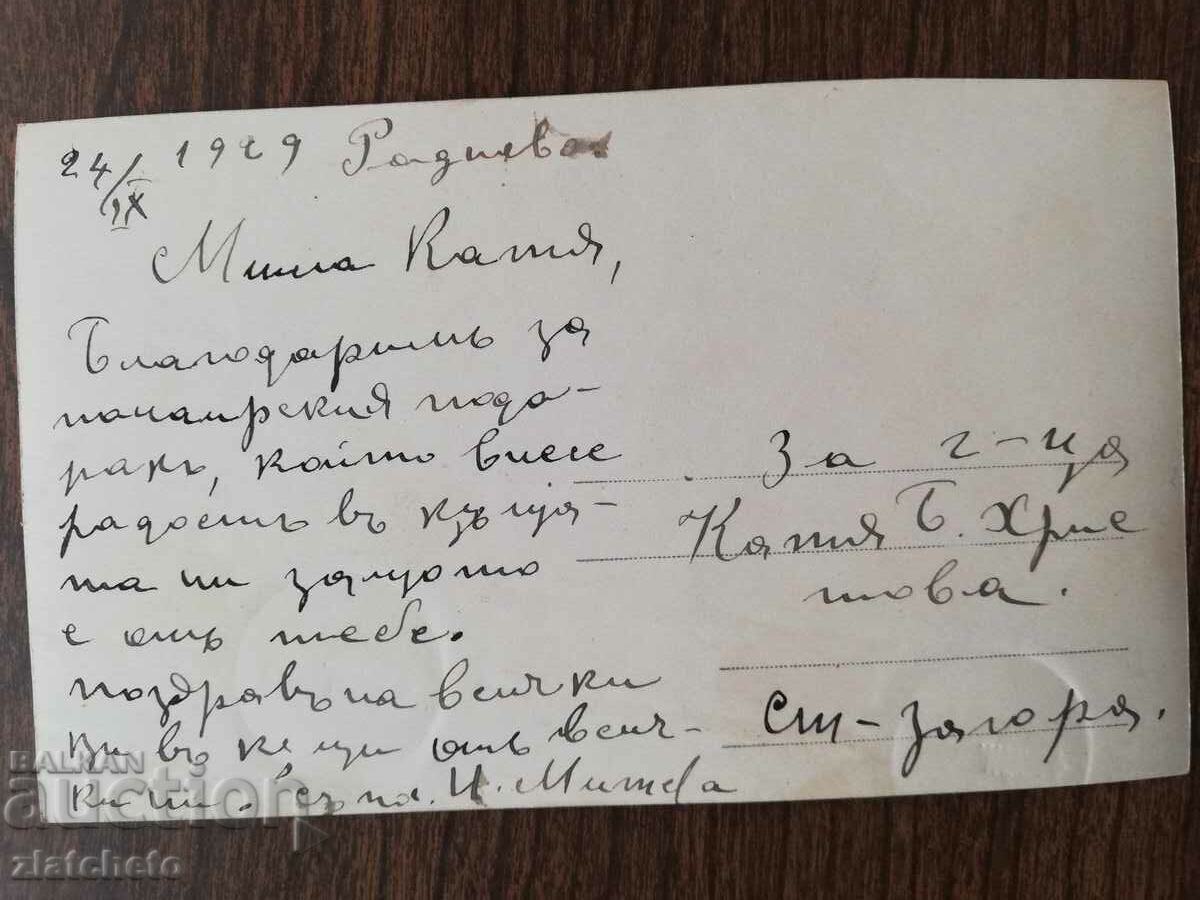 24/IX 1929 Раднево.
Мила Катя,
Благодаримъ за
панаирския пода-
ракъ, който внесе
радость въ кѫщя-
та ни защото
е отъ тебе.
поздравъ на всички
ви въ кѫщи отъ всич-
ки ни. съ поч. И. Митева
За г-ца
Катя Б. Хрис
това.
Ст-Загора.
BALKAN
auction
zlatcheto